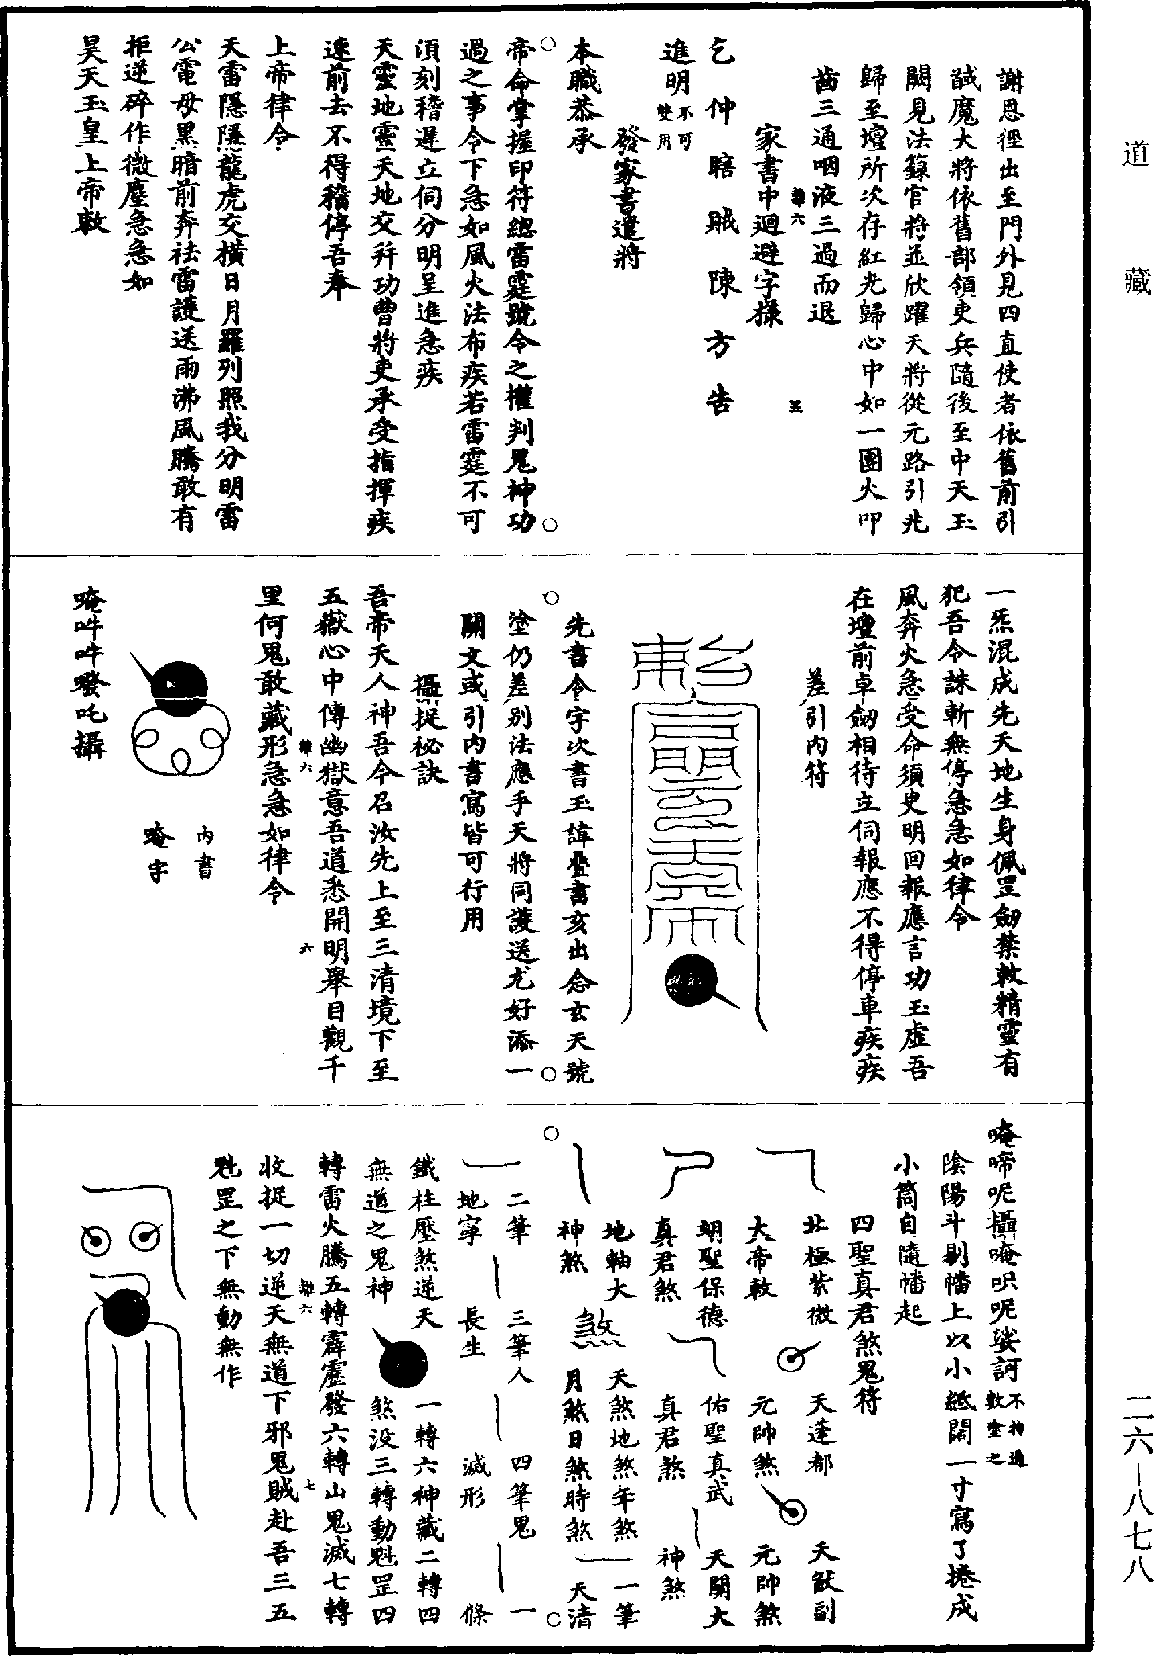 道藏
二六—八七八
謝恩徑出至門外見四直使者依舊前引
馘魔大將依舊部領吏兵隨後至中天玉
闕見法籙官將並欣躍天將從元路引兆
歸至壇所次存紅光歸心中如一團火叩
齒三通咽液三過而退
家書中迴避字樣
乞仲賠賊陳方告
進明不可雙用
發家書遣將
本職恭承
帝命掌握印符總雷霆號令之權判鬼神功
過之事令下急如風火法布疾若雷霆不可
須刻稽遲立伺分明呈進急疾
天靈地靈天地交并功曹將吏承受指揮疾
速前去不得稽停吾奉
上帝律令
天雷隱隱龍虎交橫日月羅列照我分明雷
公電母黑暗前奔祛雷護送雨沸風騰敢有
拒逆碎作微塵急急如
昊天玉皇上帝敕
一炁混成先天地生身佩罡劒禁敕精靈有
犯吾令誅斬無停急急如律令
風奔火急受命須臾明回報應言功玉虛吾
在壇前卓劒相待立伺報應不得停車疾疾
差引內符
先書令字次書玉諱疊書亥出念玄天號
塗仍差別法應乎天將同護送尤好添一
關文或引內書寫皆可行用
攝捉秘訣
吾帝天人神吾令召汝先上至三清境下至
五嶽心中傳幽獄意吾道悉開明舉目觀千
里何鬼敢藏形急急如律令
內書
唵字
唵吽吽發吒攝
唵啼呢攝唵呮呢娑訶不拘過數塗之
陰陽斗剔幡上以小紙闊一寸寫了捲成
小筒自隨幡起
四聖真君煞鬼符
北極紫微
大帝敕
天蓬都
元帥煞
天猷副
元帥煞
朝聖保德
真君煞
佑聖真武
真君煞
天關大
神煞
地軸大
神煞
煞
天煞地煞年煞
月煞日煞時煞
一筆
天清
二筆
地寧
三筆人
長生
四筆鬼
滅形
一
條
鐵柱壓煞逆天
無道之鬼神
一轉六神藏二轉四
煞没三轉動魁罡四
轉雷火騰五轉霹靂發六轉山鬼滅七轉
收捉一切逆天無道下邪鬼賊赴吾三五
魁罡之下無動無作